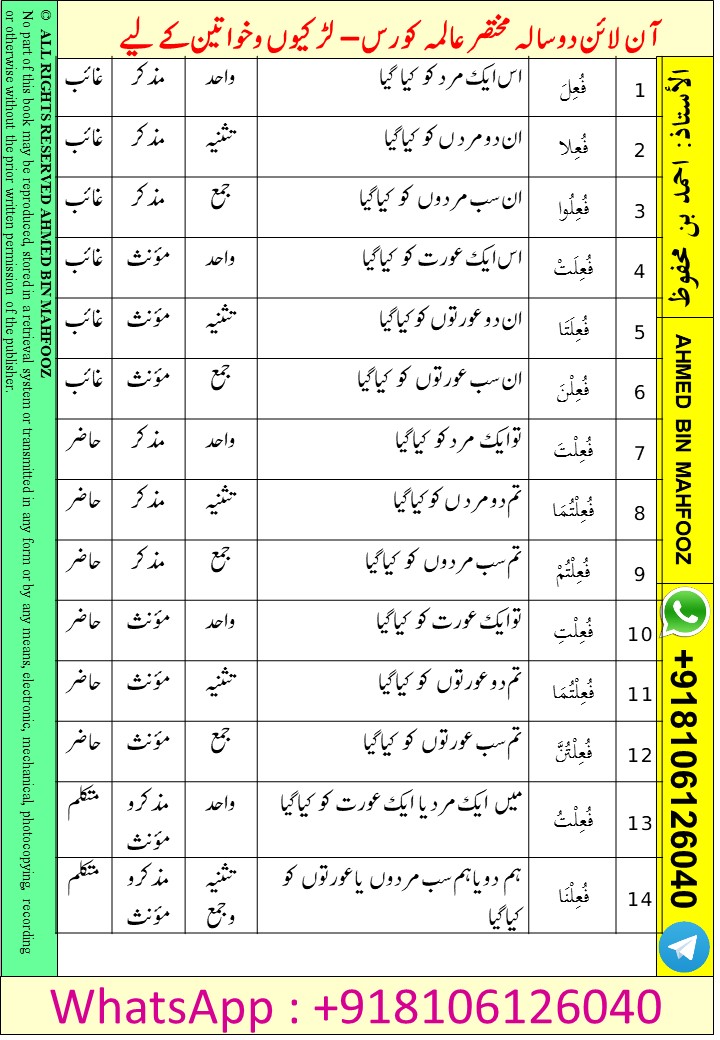 آن لائن دو سالہ مختصر عالمہ کورس – لڑکیوں و خواتین کے لیے
1 فُعِلَ اس ایک مرد کو کیا گیا واحد مذکر غائب
2 فُعِلا ان دو مردں کو کیا گیا تثنیہ مذکر غائب
3 فُعِلُوا ان سب مردوں کو کیا گیا جمع مذکر غائب
4 فُعِلَتْ اس ایک عورت کو کیا گیا واحد مؤنث غائب
5 فُعِلَتَا ان دو عورتوں کو کیا گیا تثنیہ مؤنث غائب
6 فُعِلْنَ ان سب عورتوں کو کیا گیا جمع مؤنث غائب
7 فُعِلْتَ تو ایک مرد کو کیا گیا واحد مذکر حاضر
8 فُعِلْتُمَا تم دو مردں کو کیا گیا تثنیہ مذکر حاضر
9 فُعِلْتُمْ تم سب مردوں کو کیا گیا جمع مذکر حاضر
10 فُعِلْتِ تو ایک عورت کو کیا گیا واحد مؤنث حاضر
11 فُعِلْتُمَا تم دو عورتوں کو کیا گیا تثنیہ مؤنث حاضر
12 فُعِلْتُنَّ تم سب عورتوں کو کیا گیا جمع مؤنث حاضر
13 فُعِلْتُ میں ایک مرد یا ایک عورت کو کیا گیا واحد مذکر و
مؤنث متکلم
14 فُعِلْنَا ہم دو یا ہم سب مردوں یا عورتوں کو تثنیہ مذکر و متکلم
کیا گیا و جمع مؤنث
الأستاذ: احمد بن محفوظ
AHMED BIN MAHFOOZ
+918106126040
© ALL RIGHTS RESERVED AHMED BIN MAHFOOZ
No part of this book may be reproduced, stored in a retrieval system or transmitted in any form or by any means, electronic, mechanical, photocopying, recording
or otherwise without the prior written permission of the publisher.
WhatsApp : +918106126040